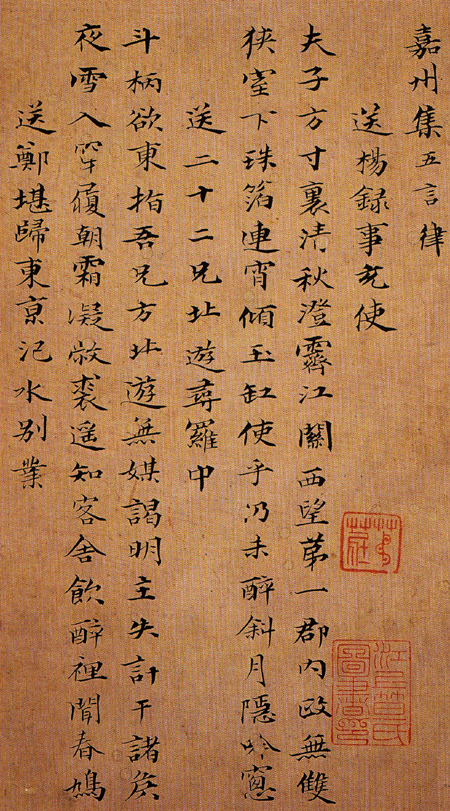 嘉州集五言律
送楊録事充使
夫子方寸裏清秋澄霽江關西望第一郡内政無雙
狹室下珠箔連宵傾玉缸使乎乃未醉斜月隱吟窻
送二十二兄北遊尋羅中
斗柄欲東指吾兄方北遊無媒謁明主失計干諸侯
夜雪入穿履朝霜凝敝裘遥知客舍飲醉裡聞春鳩
送鄭堪歸東京汜水别業
江上笪氏圖書印